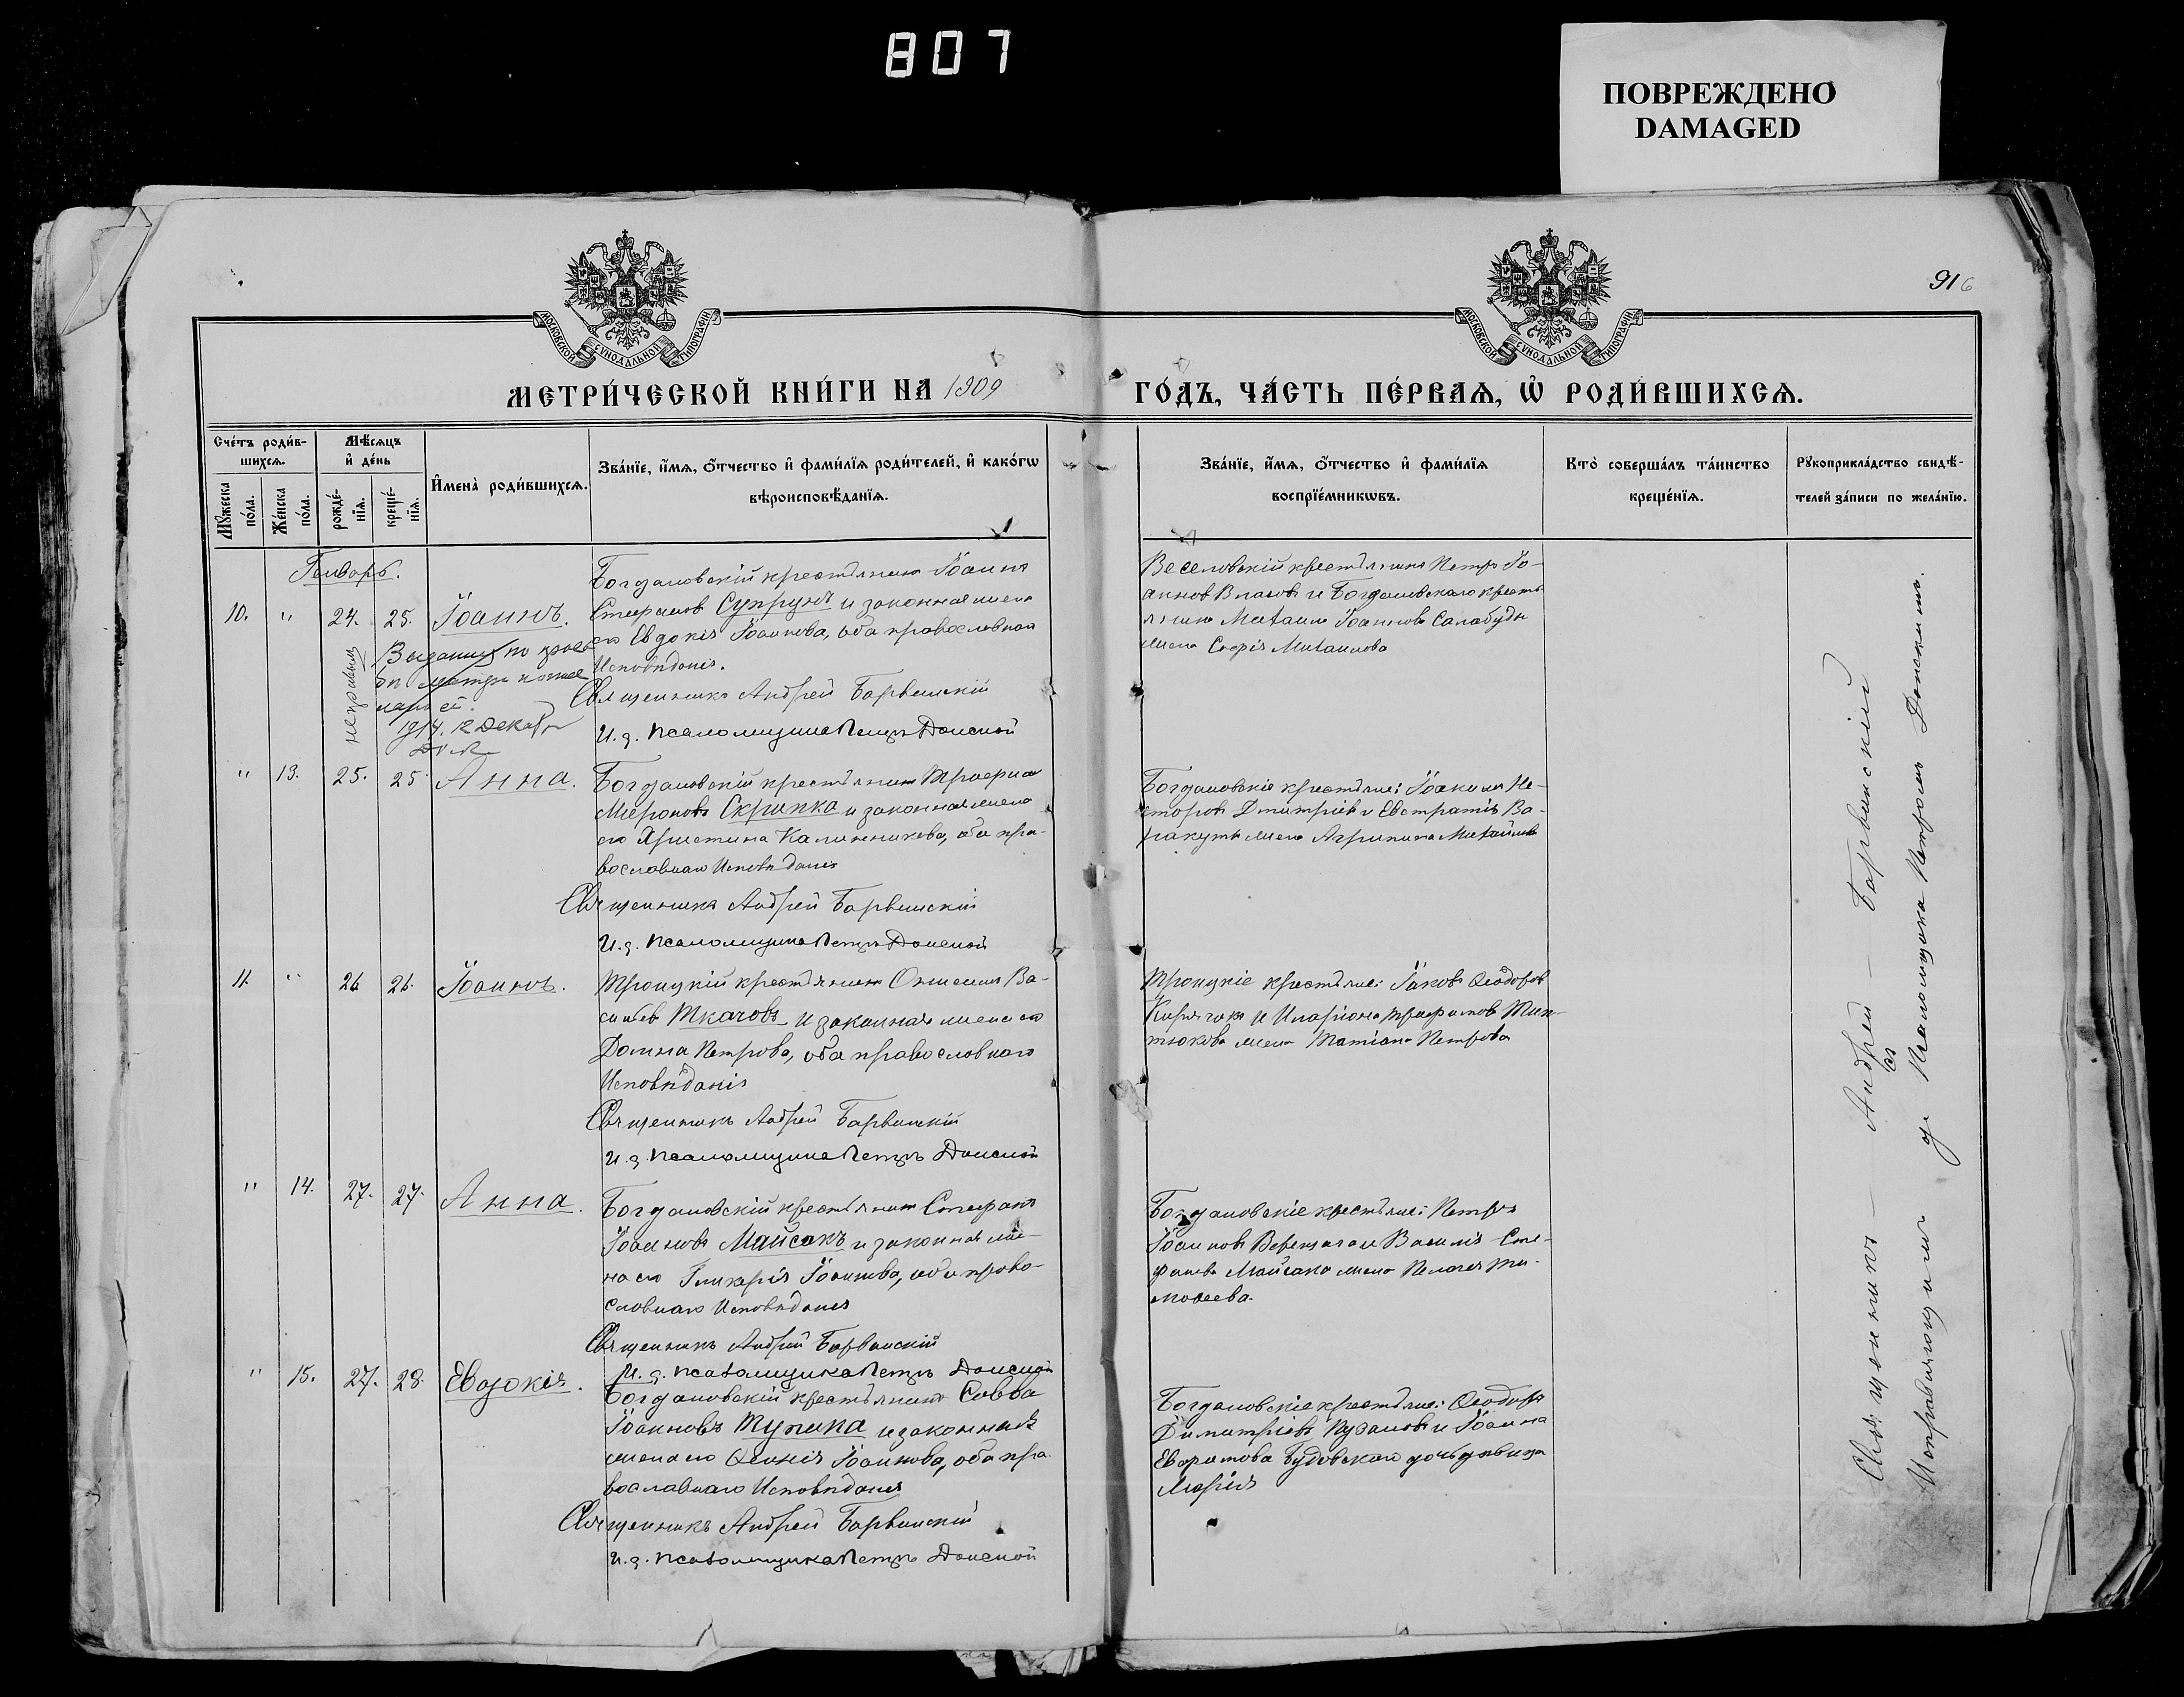 807
ПОВРЕЖДЕНО
DAMAGED
916
МОСКОВСКОЙ СѴНОДАЛЬНОЙ ТИПОГРАФІИ
МОСКОВСКОЙ СѴНОДАЛЬНОЙ ТИПОГРАФІИ
МЕТРИ́ЧЕСКОЙ КНИ́ГИ НА 1909
ГО́ДЪ, ЧА́СТЬ ПЕ́РВАѦ, Ѡ҆ РОДИ́ВШИХСѦ.
Сче́тъ роди́в-
шихсѧ.
Мꙋ́жеска по́ла.
Же́нска по́ла.
Мѣ́сѧцъ
и҆ де́нь
рожде́-
нїѧ.
креще́-
нїѧ.
И҆мена̀ роди́вшихсѧ.
Зва́нїе, и҆́мѧ, ѻ҆́тчество и҆ фами́лїѧ роди́телей, и҆ како́гѡ
вѣроисповѣ́данїѧ.
Зва́нїе, и҆́мѧ, ѻ҆́тчество и҆ фами́лїѧ
воспрїе́мникѡвъ.
Кто̀ соверша́лъ та́инство
креще́нїѧ.
Рꙋкоприкла́дство свидѣ́-
телей за́писи по жела́нїю.
Генварь.
10. " 24. 25. Іоаннъ.
Богдановскій крестьянинъ Іоаннъ
Стефановъ Супрунъ и законная жена
его Евдокія Іоаннова, оба православнаго
Исповѣданія.
Священникъ Андрей Барвинскій
И. д. псаломщика Петръ Донской
Выдана
1914. 12 Декабря
Веселовскій крестьянинъ Петръ Іо-
анновъ Власовъ и Богдановскаго кресть-
янина Михаила Іоаннова Салабуды
жена Софія Михаилова
" 13. 25. 25 Анна.
Богдановскій крестьянинъ Трофимъ
Мироновъ Скрипка и законная жена
его Христина Калинникова, оба пра-
вославнаго Исповѣданія
Священникъ Андрей Барвинскій
И. д. псаломщика Петръ Донской
Богдановскіе крестьяне: Іоакимъ Не-
сторовъ Дмитріевъ и Евстратія Ва-
ракуты жена Агрипина Михаилова
11. " 26 26. Іоаннъ.
Троицкій крестьянинъ Онисимъ Ва-
сильевъ Ткачовъ и законная жена его
Домна Петрова, оба православнаго
Исповѣданія
Священникъ Андрей Барвинскій
И. д. псаломщика Петръ Донской
Троицкіе крестьяне: Іаковъ Ѳеодоровъ
Кирячокъ и Иларіона Трофимова Тип-
тюкова жена Татіана Петрова
" 14. 27. 27. Анна.
Богдановскій крестьянинъ Стефанъ
Іоанновъ Майсакъ и законная же-
на его Гликерія Іоаннова, оба право-
славнаго Исповѣданія
Священникъ Андрей Барвинскій
И. д. псаломщика Петръ Донской
Богдановскіе крестьяне: Петръ
Іоанновъ и Василія Сте-
фанова Майсака жена Пелагея Ти-
моѳеева.
" 15. 27. 28. Евдокія.
Богдановскій крестьянинъ Савва
Іоанновъ Тупика и законная
жена его Ксенія Іоаннова, оба пра-
вославнаго Исповѣданія
Священникъ Андрей Барвинскій
И. д. псаломщика Петръ Донской
Богдановскіе крестьяне: Ѳеодоръ
Димитріевъ Пузановъ и Іоанна
Будовскаго дочь дѣвица
Марія
Священникъ — Андрей — Барвинскій
съ
Исправляющимъ д. Псаломщика Петромъ Донскимъ.